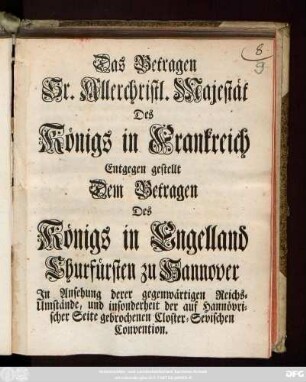 8
9
Das Betragen
Sr. Allerchristl. Majestät
Des
Königs in Frankreich
Entgegen gestellt
Dem Betragen
Des
Königs in Engelland
Churfürsten zu Hannover
In Ansehung derer gegenwärtigen Reichs-
Umstände, und insonderheit der auf Hannövri-
scher Seite gebrochenen Closter-Sevischen
Convention.